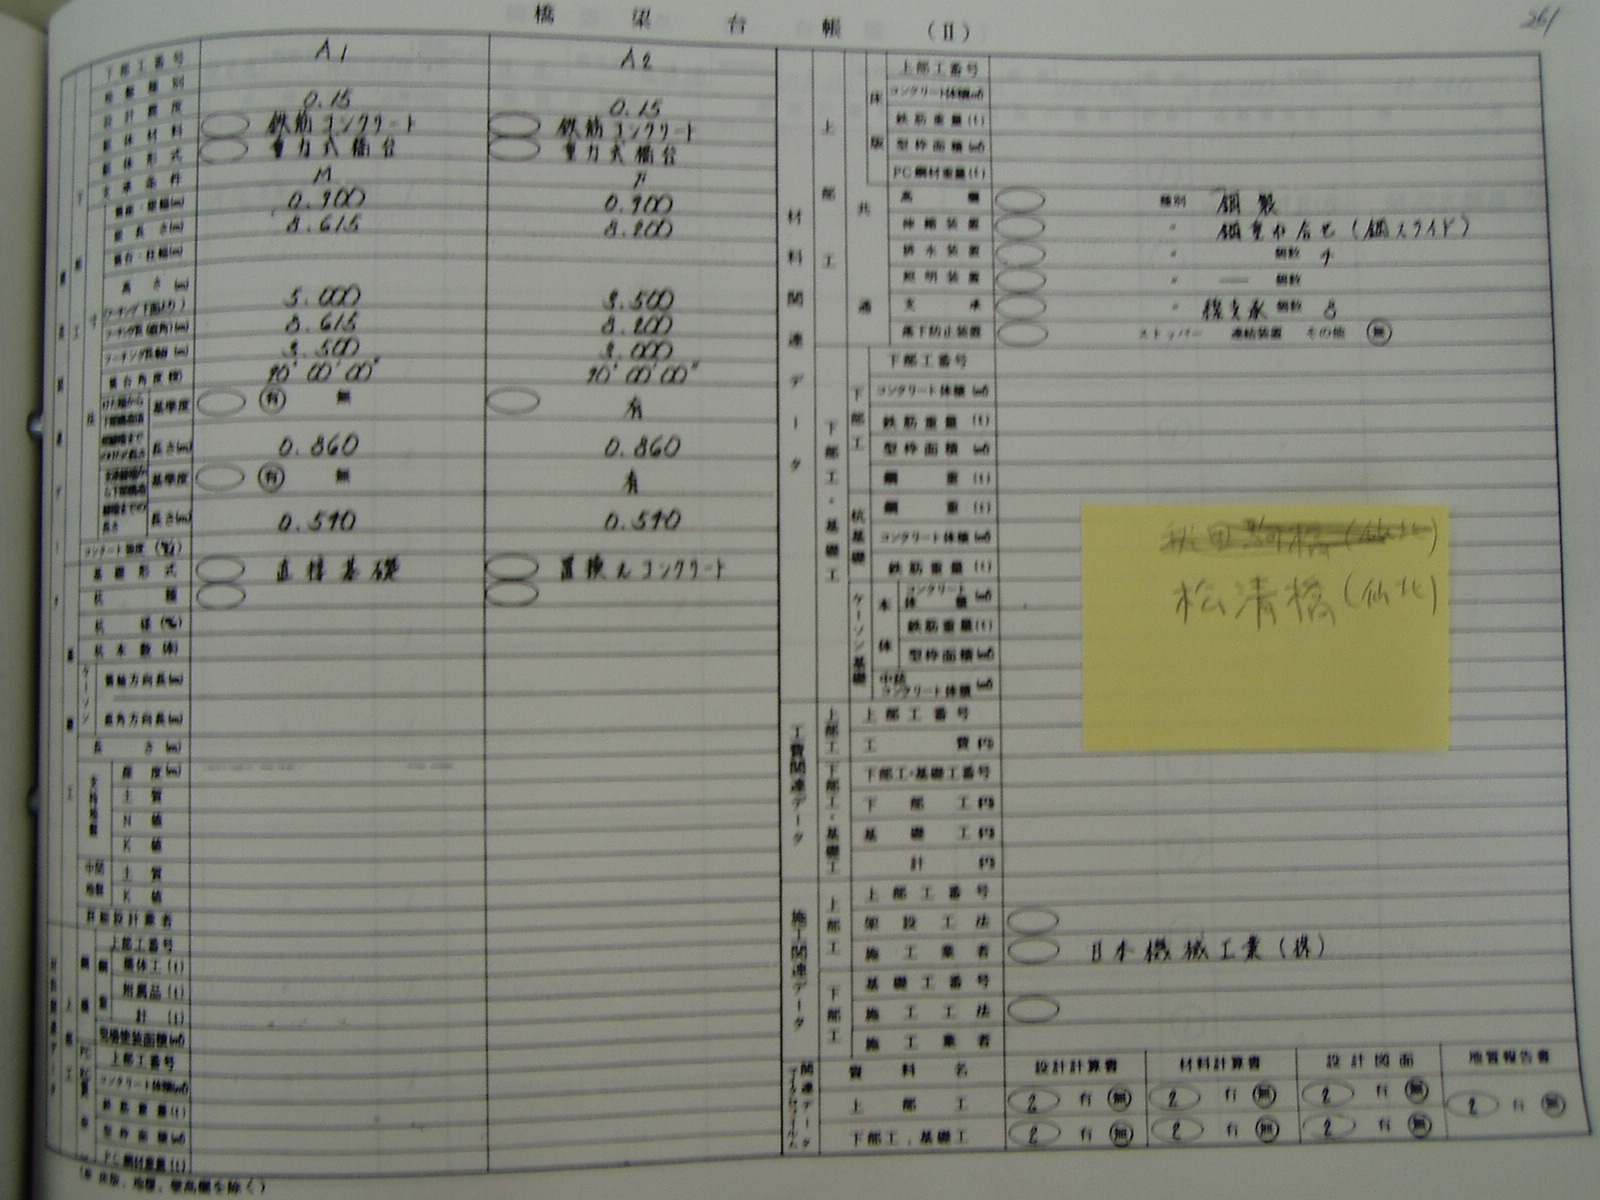 橋梁台帳 (II)
261
下部工番号 A1 A2
地盤種別
設計震度 0.15 0.15
躯体材料 鉄筋コンクリート 鉄筋コンクリート
躯体形式 重力式橋台 重力式橋台
支承条件 M F
0.900 0.900
8.615 8.200
高さ(m)
5.000 3.500
8.615 8.200
3.500 3.000
90°00'00" 90°00'00"
基準度 有 無 有
長さ(m) 0.860 0.860
基準度 有 無 有
長さ(m) 0.510 0.510
基礎形式 直接基礎 置換えコンクリート
杭種
杭本数(本)
ケーソン
橋軸方向長(m)
直角方向長(m)
長さ(m)
支持地盤
深度(m)
土質
N値
K値
中間地盤
土質
K値
詳細設計業者
上部工番号
橋体工(t)
附属品(t)
計(t)
現場塗装面積(㎡)
上部工番号
コンクリート体積(㎥)
鉄筋重量(t)
型枠面積(㎡)
PC鋼材重量(t)
材料関連データ
上部工
床版
上部工番号
コンクリート体積(㎥)
鉄筋重量(t)
型枠面積(㎡)
PC鋼材重量(t)
共通
高欄 種別 鋼製
伸縮装置 〃 鋼重ね合せ(鋼スライド)
排水装置 〃 個数 4
照明装置 〃 — 個数
支承 〃 線支承 個数 8
落下防止装置 ストッパー 連結装置 その他 無
下部工・基礎工
下部工
下部工番号
コンクリート体積(㎥)
鉄筋重量(t)
型枠面積(㎡)
鋼重(t)
杭基礎
鋼重(t)
コンクリート体積(㎥)
鉄筋重量(t)
ケーソン基礎
本体
コンクリート体積(㎥)
鉄筋重量(t)
型枠面積(㎡)
中詰コンクリート体積(㎥)
秋田駒橋(仙北)
松清橋(仙北)
工費関連データ
上部工
上部工番号
工費(円)
下部工・基礎工
下部工・基礎工番号
下部工(円)
基礎工(円)
計(円)
施工関連データ
上部工
上部工番号
架設工法
施工業者 日本機械工業(株)
下部工
基礎工番号
施工工法
施工業者
資料名 設計計算書 材料計算書 設計図面 地質報告書
上部工 2 有 無 2 有 無 2 有 無 2 有 無
下部工、基礎工 2 有 無 2 有 無 2 有 無
(※床版、地覆、壁高欄を除く)